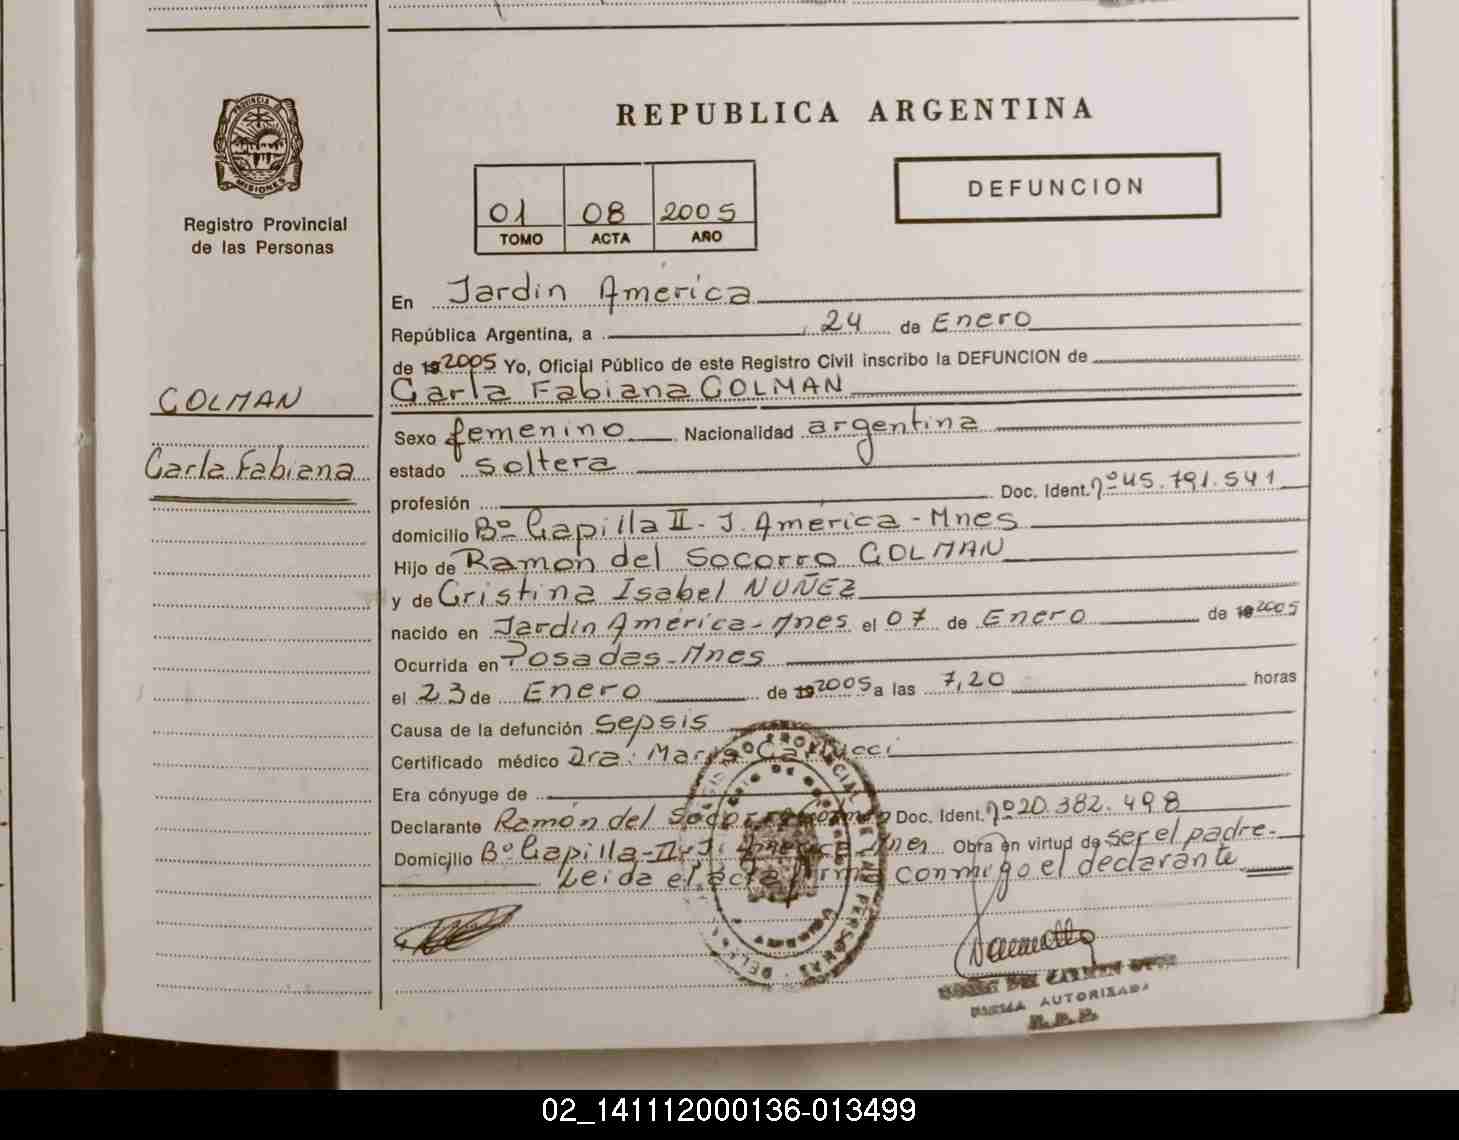 PROVINCIA DE
MISIONES
Registro Provincial
de las Personas
COLMAN
Carla Fabiana
REPUBLICA ARGENTINA
01 08 2005
TOMO ACTA AÑO
DEFUNCION
En Jardin América
República Argentina, a 24 de Enero
de 192005 Yo, Oficial Público de este Registro Civil inscribo la DEFUNCION de
Carla Fabiana COLMAN
Sexo femenino Nacionalidad argentina
estado soltera
profesión Doc. Ident. nº 45.791.541
domicilio Bº Capilla II - J. América - Mnes
Hijo de Ramón del Socorro COLMAN
y de Cristina Isabel NUÑEZ
nacido en Jardin América - Mnes el 07 de Enero de 192005
Ocurrida en Posadas - Mnes
el 23 de Enero de 192005 a las 7,20 horas
Causa de la defunción sepsis
Certificado médico Dra:
Era cónyuge de
Declarante Ramón del Socorro Colman Doc. Ident. nº 20.382.498
Domicilio Bº Capilla - II - J. América Mnes Obra en virtud de ser el padre.
Leida el acta firma conmigo el declarante
AUTORIZADA
02_141112000136-013499